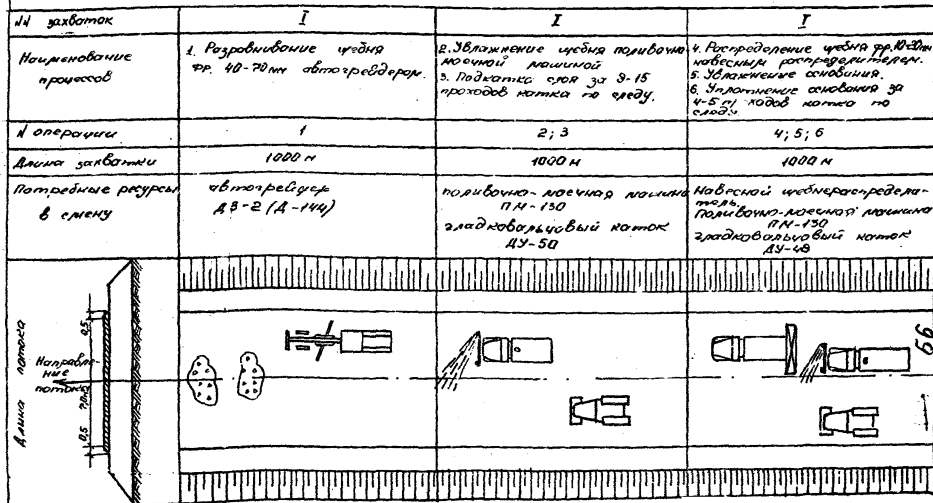 NN захваток
I
I
I
Наименование
процессов
1. Разравнивание щебня
фр. 40-70мм автогрейдером.
2. Увлажнение щебня поливочно
моечной машиной
3. Подкатка слоя за 9-15
проходов катка по следу.
4. Распределение щебня фр.10-20мм
навесным распределителем.
5. Увлажнение основания.
6. Уплотнение основания за
4-5 ходов катка по
следу.
N операции
1
2; 3
4; 5; 6
Длина захватки
1000 м
1000 м
1000 м
Потребные ресурсы
в смену
автогрейдер
ДЗ-2 (Д-144)
поливочно-моечная машина
ПМ-130
гладковальцовый каток
ДУ-50
Навесной щебнераспредели-
тель.
Поливочно-моечная машина
ПМ-130
гладковальцовый каток
ДУ-48
Длина потока
0,5
7,0м
0,5
Направле-
ние
потока
66